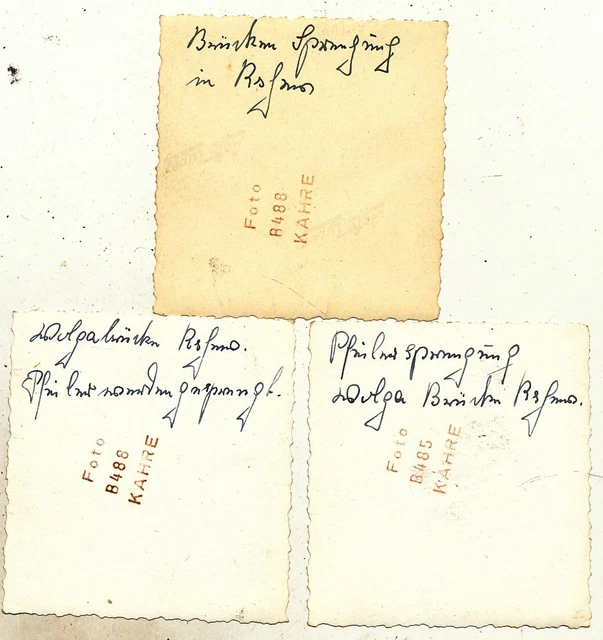 Brücken Sprengung
in Rshew
Foto
B488
KAHRE
Wolgabrücke Rshew.
Pfeiler werden gesprengt.
Foto
B488
KAHRE
Pfeilersprengung
Wolga Brücke Rshew.
Foto
B485
KAHRE